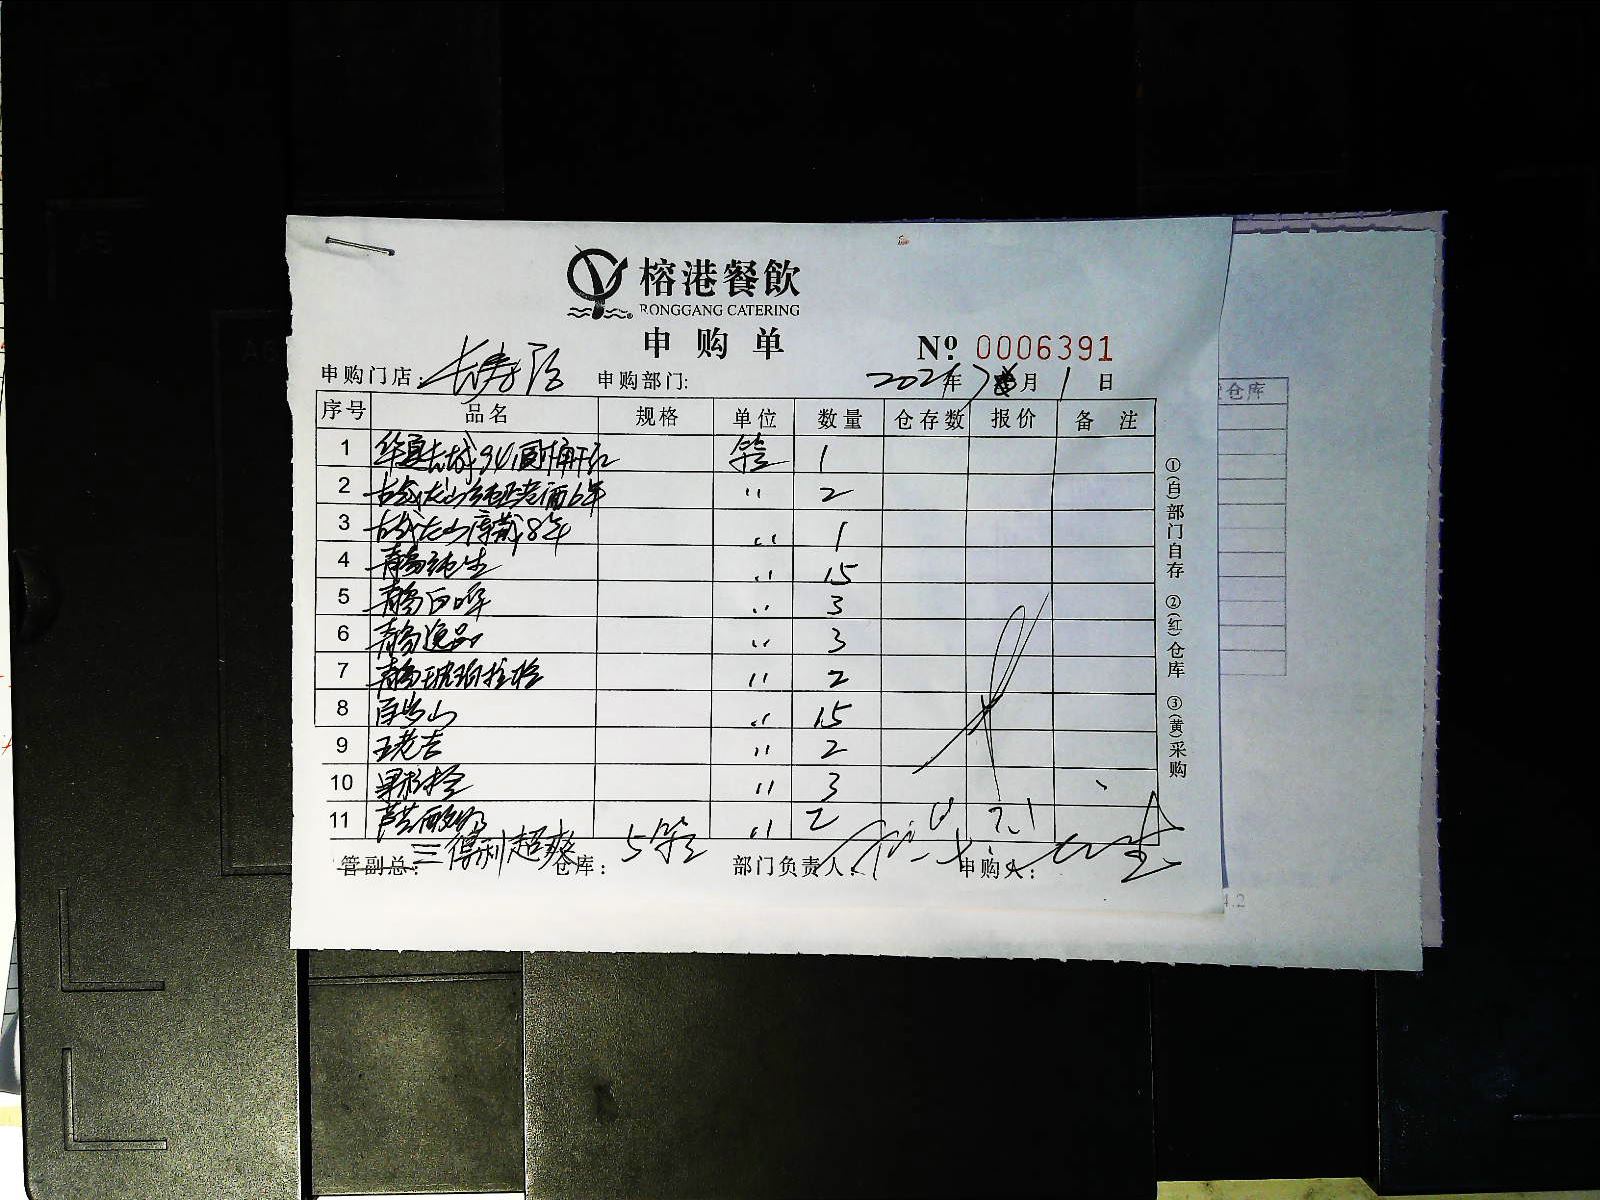 榕港餐飲
RONGGANG CATERING
申购单
№ 0006391
申购门店: 长寿路 申购部门: 2021年7月1日
序号 品名 规格 单位 数量 仓存数 报价 备注
1 华夏长城94圆桶干红 箱 1
2 古越龙山 老酒6年 〃 2
3 古越龙山库藏8年 〃 1
4 青岛纯生 〃 15
5 青岛白啤 〃 3
6 青岛逸品 〃 3
7 青岛琥珀拉格 〃 2
8 百岁山 〃 15
9 王老吉 〃 2
10 果粒橙 〃 3
11 芦荟酸奶 〃 2
三得利超爽 5箱
7.1
管副总: 仓库: 部门负责人: 申购人:
①(白)部门自存 ②(红)仓库 ③(黄)采购
仓库
4.2
A6